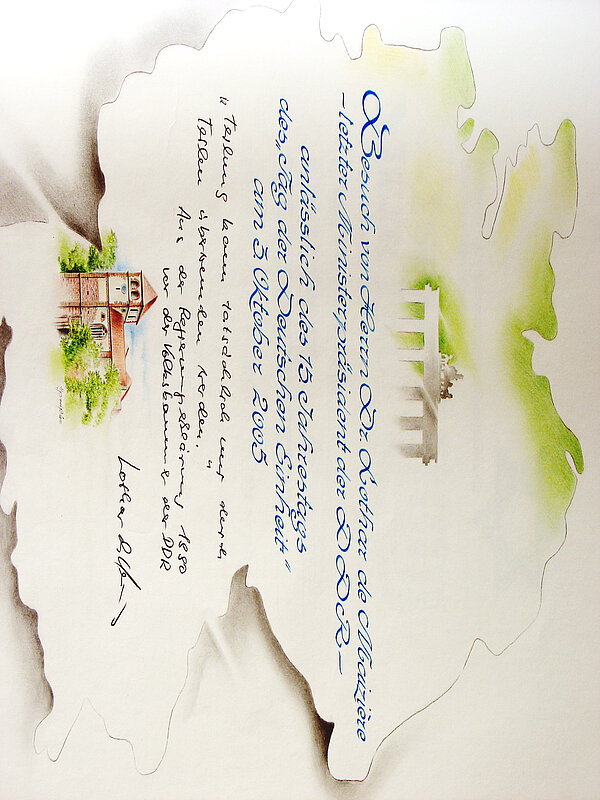 Besuch von Herrn Dr. Lothar de Maizière
– letzter Ministerpräsident der DDR –
anlässlich des 15 Jahrestags
des „Tag der Deutschen Einheit“
am 3 Oktober 2005
" Teilung kann tatsächlich nur durch
Teilen überwunden werden. "
Aus der Regierungserklärung 1990
vor der Volkskammer der DDR
Lothar de Maizière